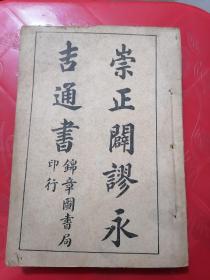 崇正闢謬永
吉通書
錦章圖書局
印行